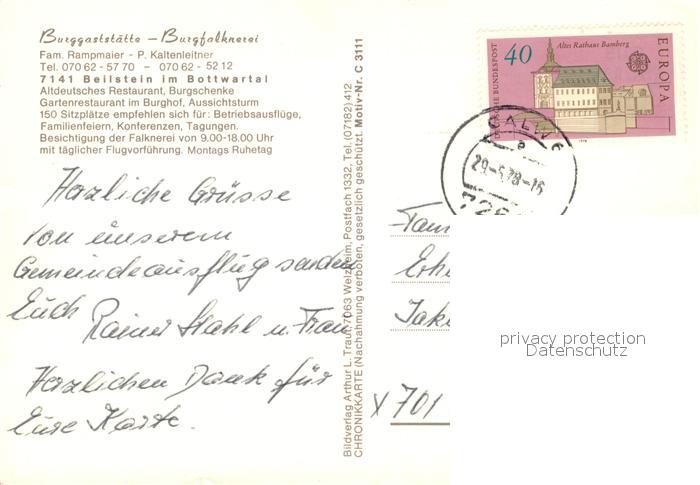 Burggaststätte – Burgfalknerei
Fam. Rampmaier - P. Kaltenleitner
Tel. 070 62 - 57 70 – 070 62 - 52 12
7141 Beilstein im Bottwartal
Altdeutsches Restaurant, Burgschenke
Gartenrestaurant im Burghof, Aussichtsturm
150 Sitzplätze empfehlen sich für: Betriebsausflüge,
Familienfeiern, Konferenzen, Tagungen.
Besichtigung der Falknerei von 9.00-18.00 Uhr
mit täglicher Flugvorführung. Montags Ruhetag
Herzliche Grüsse
von unserem
Gemeindeausflug senden
Euch
Rainer Stahl u. Frau
Herzlichen Dank für
Eure Karte.
Bildverlag Arthur L. Traut, 7063 Welzheim, Postfach 1332, Tel. (07182) 412
CHRONIKKARTE (Nachahmung verboten, gesetzlich geschützt. Motiv-Nr. C 3111
DEUTSCHE BUNDESPOST
40
Altes Rathaus Bamberg
EUROPA
1978
CALW
29.-5.78-16
726
Fam
Erh
Jak
701
privacy protection
Datenschutz